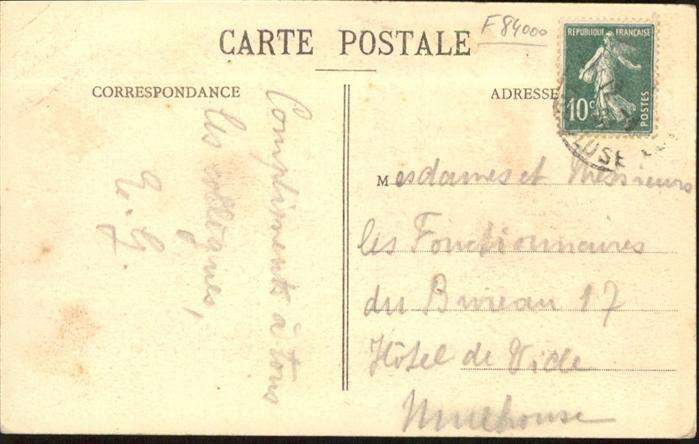 F 84000
CARTE POSTALE
RÉPUBLIQUE FRANÇAISE
10c
POSTES
CORRESPONDANCE
ADRESSE
Compliments à tous
les collègues,
Mesdames et Messieurs
les Fonctionnaires
du Bureau 17
Hôtel de Ville
Mulhouse